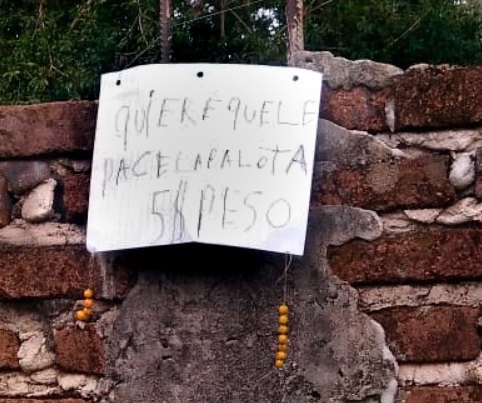 QUIEREQUELE
PACELAPALOTA
5$PESO